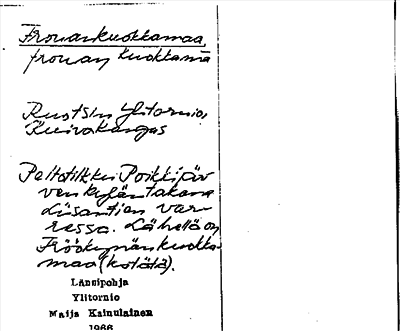 Frouankuokkamaa,
frouan kuokkama
Ruotsin Ylitornio,
Kuivakangas
Peltotilkku Poikkijär
ven kylän takana
Liisantien var-
ressa. Lähellä on
Fröökynänkuokka-
maa (kotätä).
Länsipohja
Ylitornio
Maija Kainulainen
1966